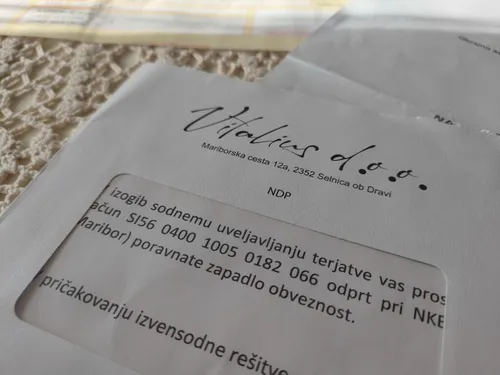 Vitalius d.o.o.
Mariborska cesta 12a, 2352 Selnica ob Dravi
NDP
izogib sodnemu uveljavljanju terjatve vas pros
ačun SI56 0400 1005 0182 066 odprt pri NKB
Maribor) poravnate zapadlo obveznost.
pričakovanju izvensodne rešitve